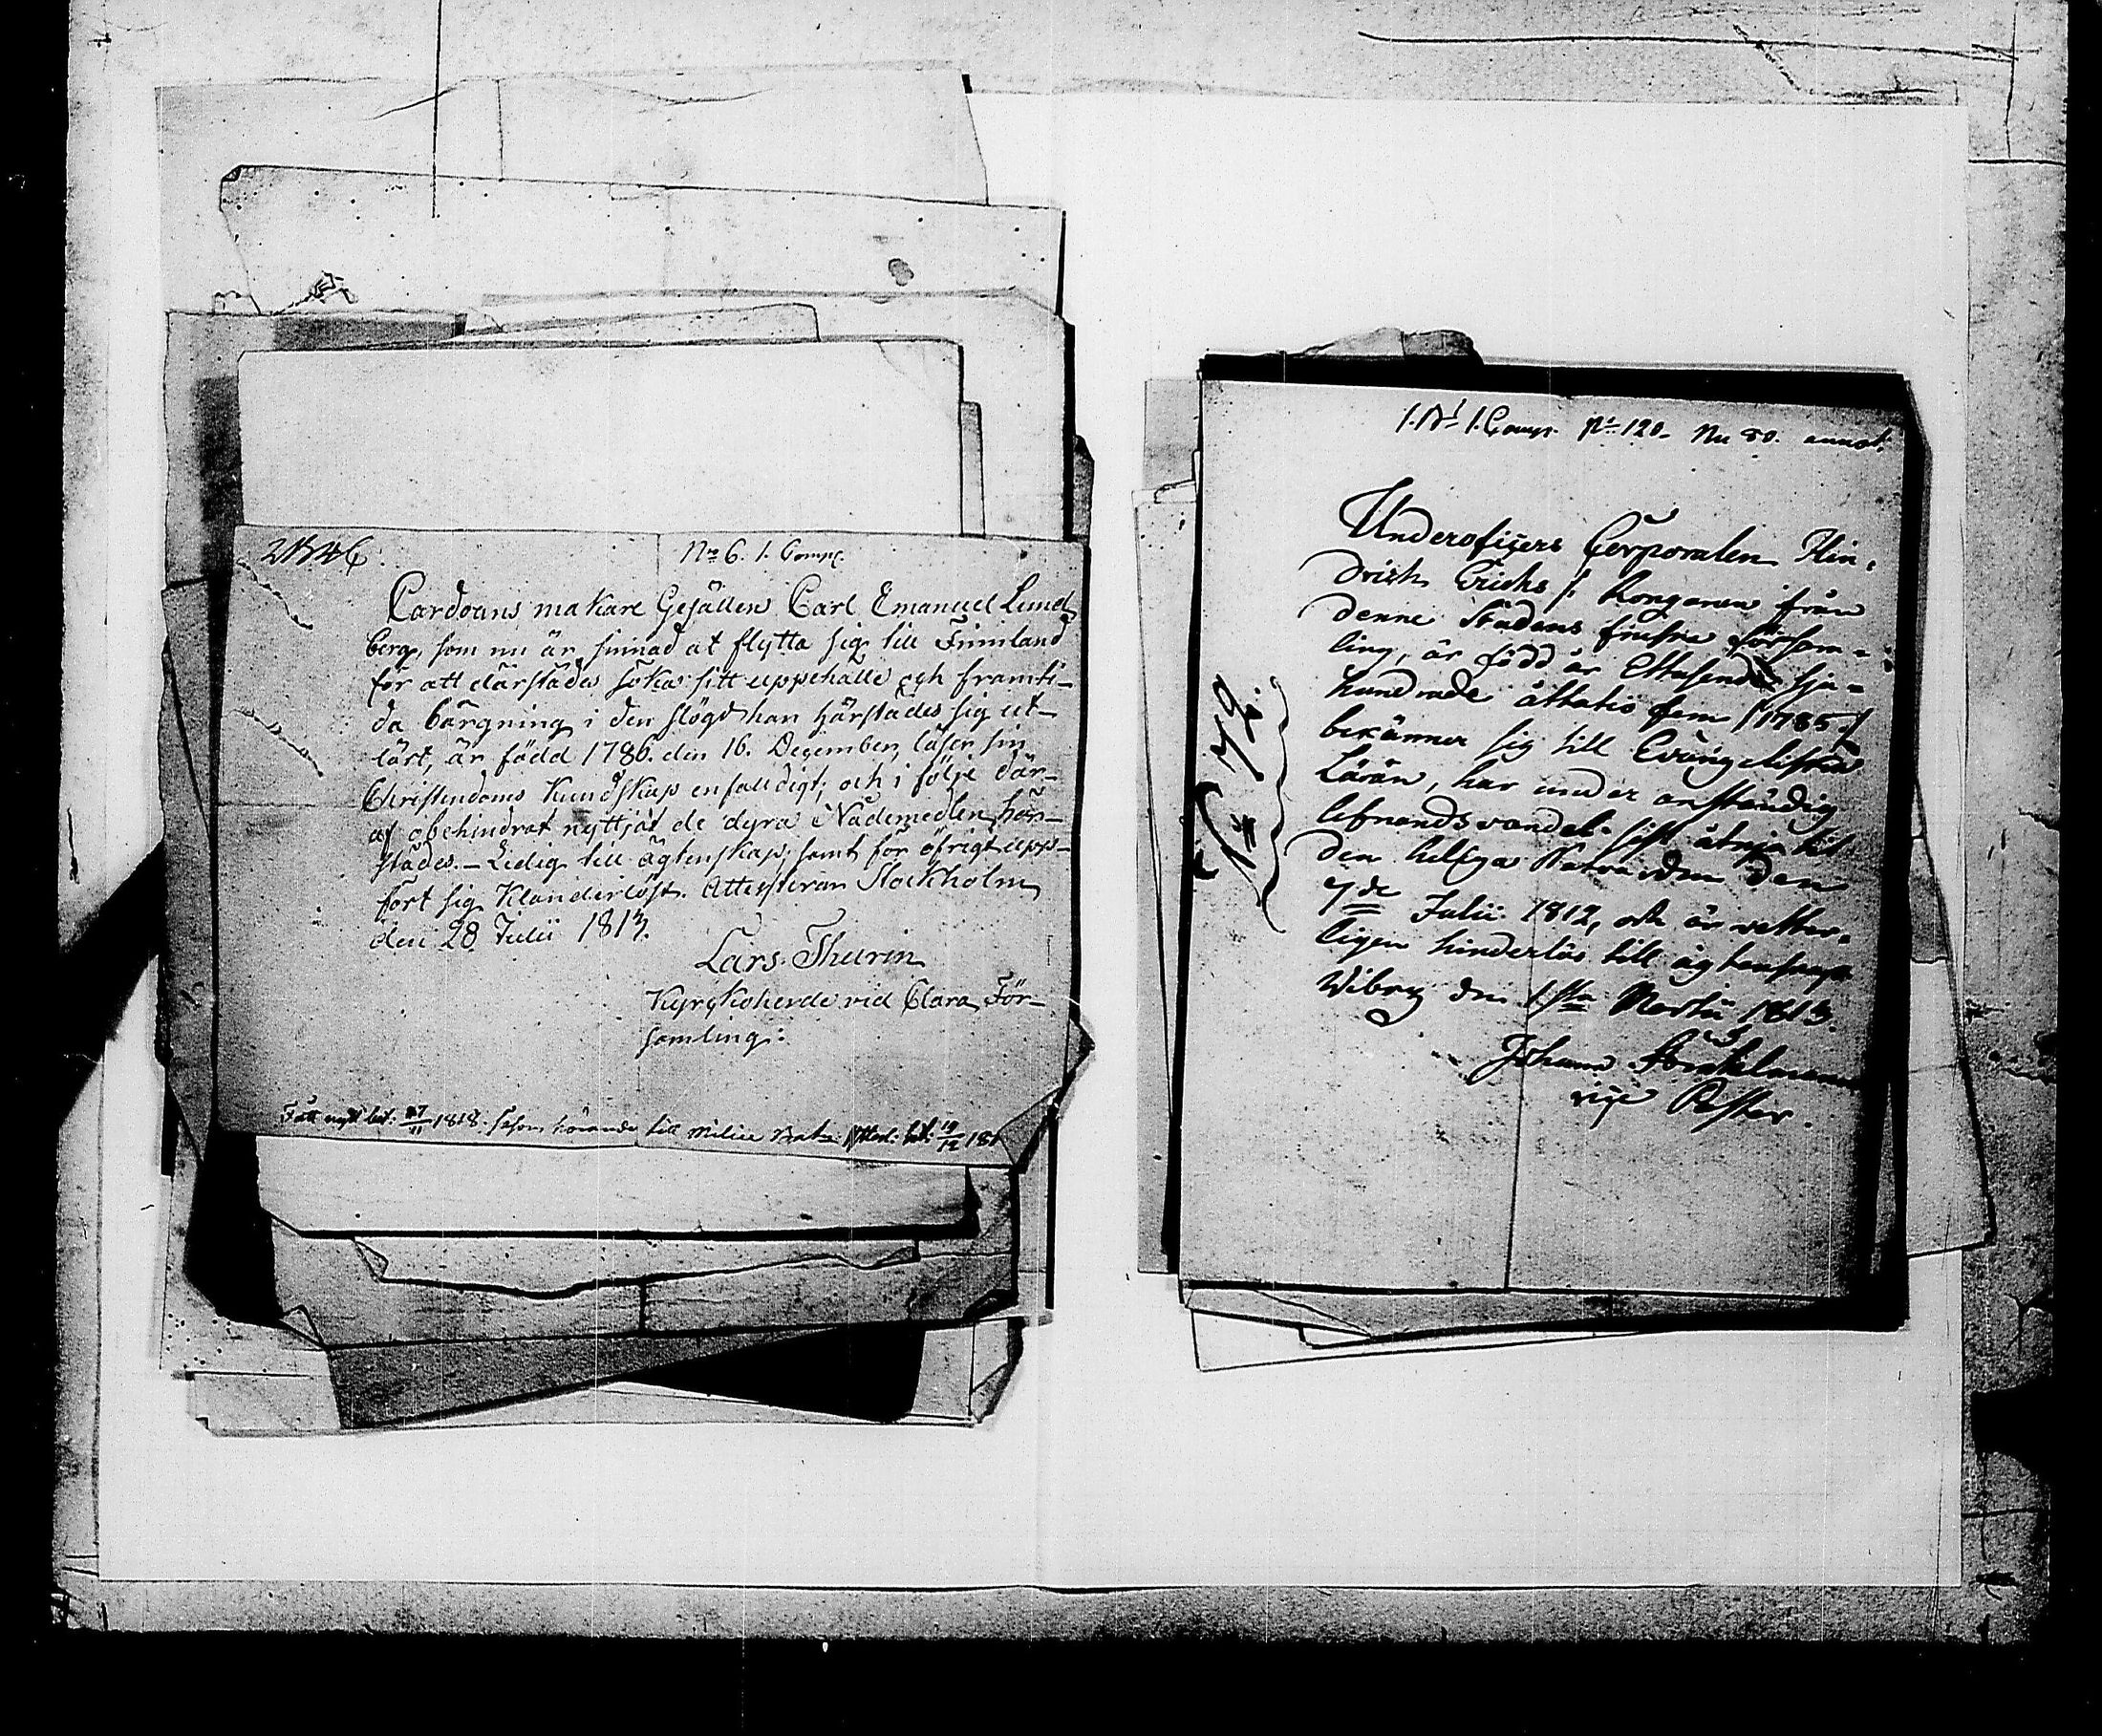 No 6. 1. Comp.
Cardouns makare Gesällen Carl Emanuel Lund
berg, som nu är sinnad at flytta sig till Finnland
för att därstädes söka sitt uppehälle och framti-
da bärgning i den slögd han härstädes sig ut-
lärt, är född 1786. den 16. December, läser sin
Christendoms Kundskap enfaldigt; och i följe där-
af obehindrat nyttjat de dyra Nådemedlen här-
städes. – Ledig till ägtenskap, samt för öfrigt upp-
fört sig Klanderlöst. Attesteran Stockholm
den 28 Julii 1813.
Lars Thurin
Kyrckoherde vid Clara För-
samling:
Fått nytt bet. 27/11 1818. såsom hörande till Milice 19/12 181
1. Comp. No 120. Nu 80. annot.
No 72.
Underoficers Corporalen Hin-
drich Erichs s. Korgonen från
denne Stadens finska försam-
ling, är född år Ettusende sju-
hundrade åttatio fem /1785/
bekänner sig till Evangeliska
Läran, har under anständig
lefnandsvandel sist åtnjutit
den helga Nattvarden den
7de Julii 1812, och är vetter-
ligen hinderlös till ägtenskap
Wiborg den 1sta Martii 1813.
Johann
vice Pastor.